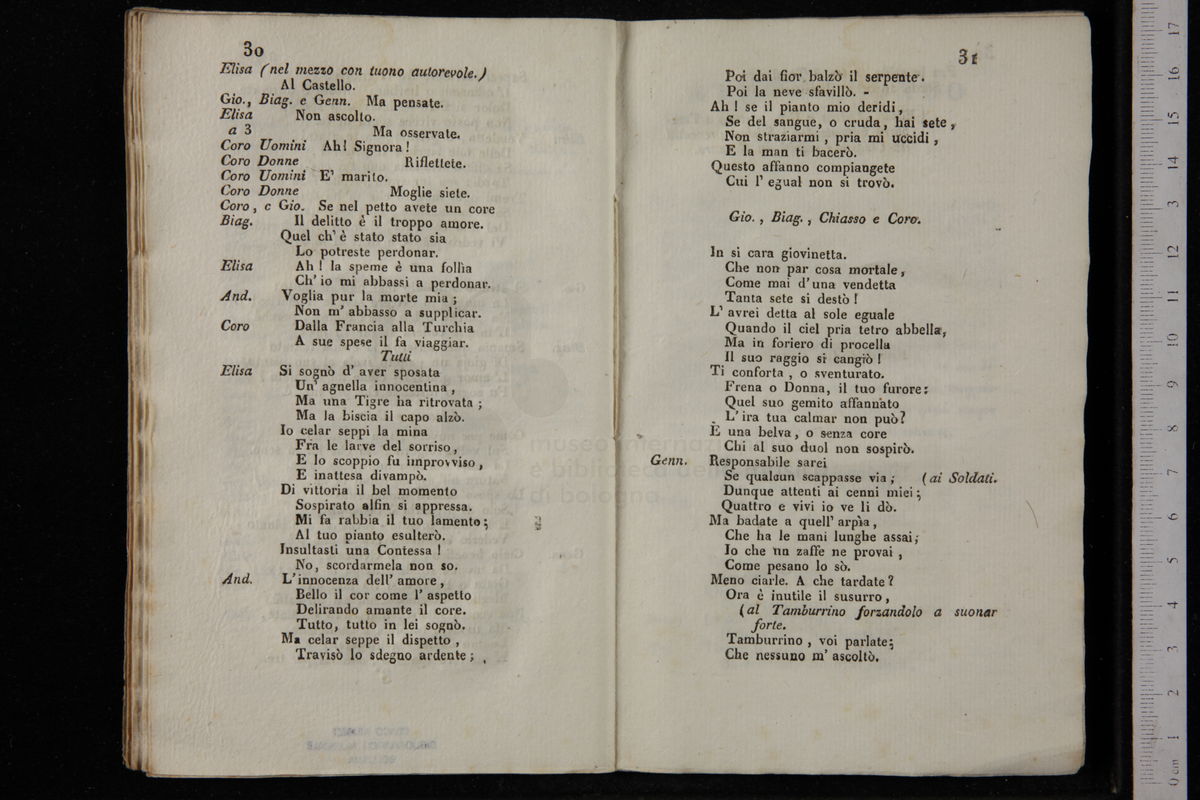 30
Elisa (nel mezzo con tuono autorevole.)
Al Castello.
Gio., Biag. e Genn. Ma pensate.
Elisa Non ascolto.
a 3 Ma osservate.
Coro Uomini Ah! Signora!
Coro Donne Riflettete.
Coro Uomini E' marito.
Coro Donne Moglie siete.
Coro, e Gio. Se nel petto avete un core
Biag. Il delitto è il troppo amore.
Quel ch' è stato stato sia
Lo potreste perdonar.
Elisa Ah! la speme è una follìa
Ch' io mi abbassi a perdonar.
And. Voglia pur la morte mia;
Non m' abbasso a supplicar.
Coro Dalla Francia alla Turchia
A sue spese il fa viaggiar.
Tutti
Elisa Si sognò d' aver sposata
Un' agnella innocentina,
Ma una Tigre ha ritrovata;
Ma la biscia il capo alzò.
Io celar seppi la mina
Fra le larve del sorriso,
E lo scoppio fu improvviso,
E inattesa divampò.
Di vittoria il bel momento
Sospirato alfin si appressa.
Mi fa rabbia il tuo lamento;
Al tuo pianto esulterò.
Insultasti una Contessa!
No, scordarmela non so.
And. L' innocenza dell' amore,
Bello il cor come l' aspetto
Delirando amante il core.
Tutto, tutto in lei sognò.
Ma celar seppe il dispetto,
Travisò lo sdegno ardente;
31
Poi dai fior balzò il serpente.
Poi la neve sfavillò. -
Ah! se il pianto mio deridi,
Se del sangue, o cruda, hai sete,
Non straziarmi, pria mi uccidi,
E la man ti bacerò.
Questo affanno compiangete
Cui l' egual non si trovò.
Gio., Biag., Chiasso e Coro.
In si cara giovinetta.
Che non par cosa mortale,
Come mai d' una vendetta
Tanta sete si destò!
L' avrei detta al sole eguale
Quando il ciel pria tetro abbella,
Ma in foriero di procella
Il suo raggio si cangiò!
Ti conforta, o sventurato.
Frena o Donna, il tuo furore:
Quel suo gemito affannato
L' ira tua calmar non può?
È una belva, o senza core
Chi al suo duol non sospirò.
Genn. Responsabile sarei
Se qualcun scappasse via; (ai Soldati.
Dunque attenti ai cenni miei;
Quattro e vivi io ve li dò.
Ma badate a quell' arpìa,
Che ha le mani lunghe assai;
Io che un zaffe ne provai,
Come pesano lo sò.
Meno ciarle. A che tardate?
Ora è inutile il susurro,
(al Tamburrino forzandolo a suonar
forte.
Tamburrino, voi parlate;
Che nessuno m' ascoltò.